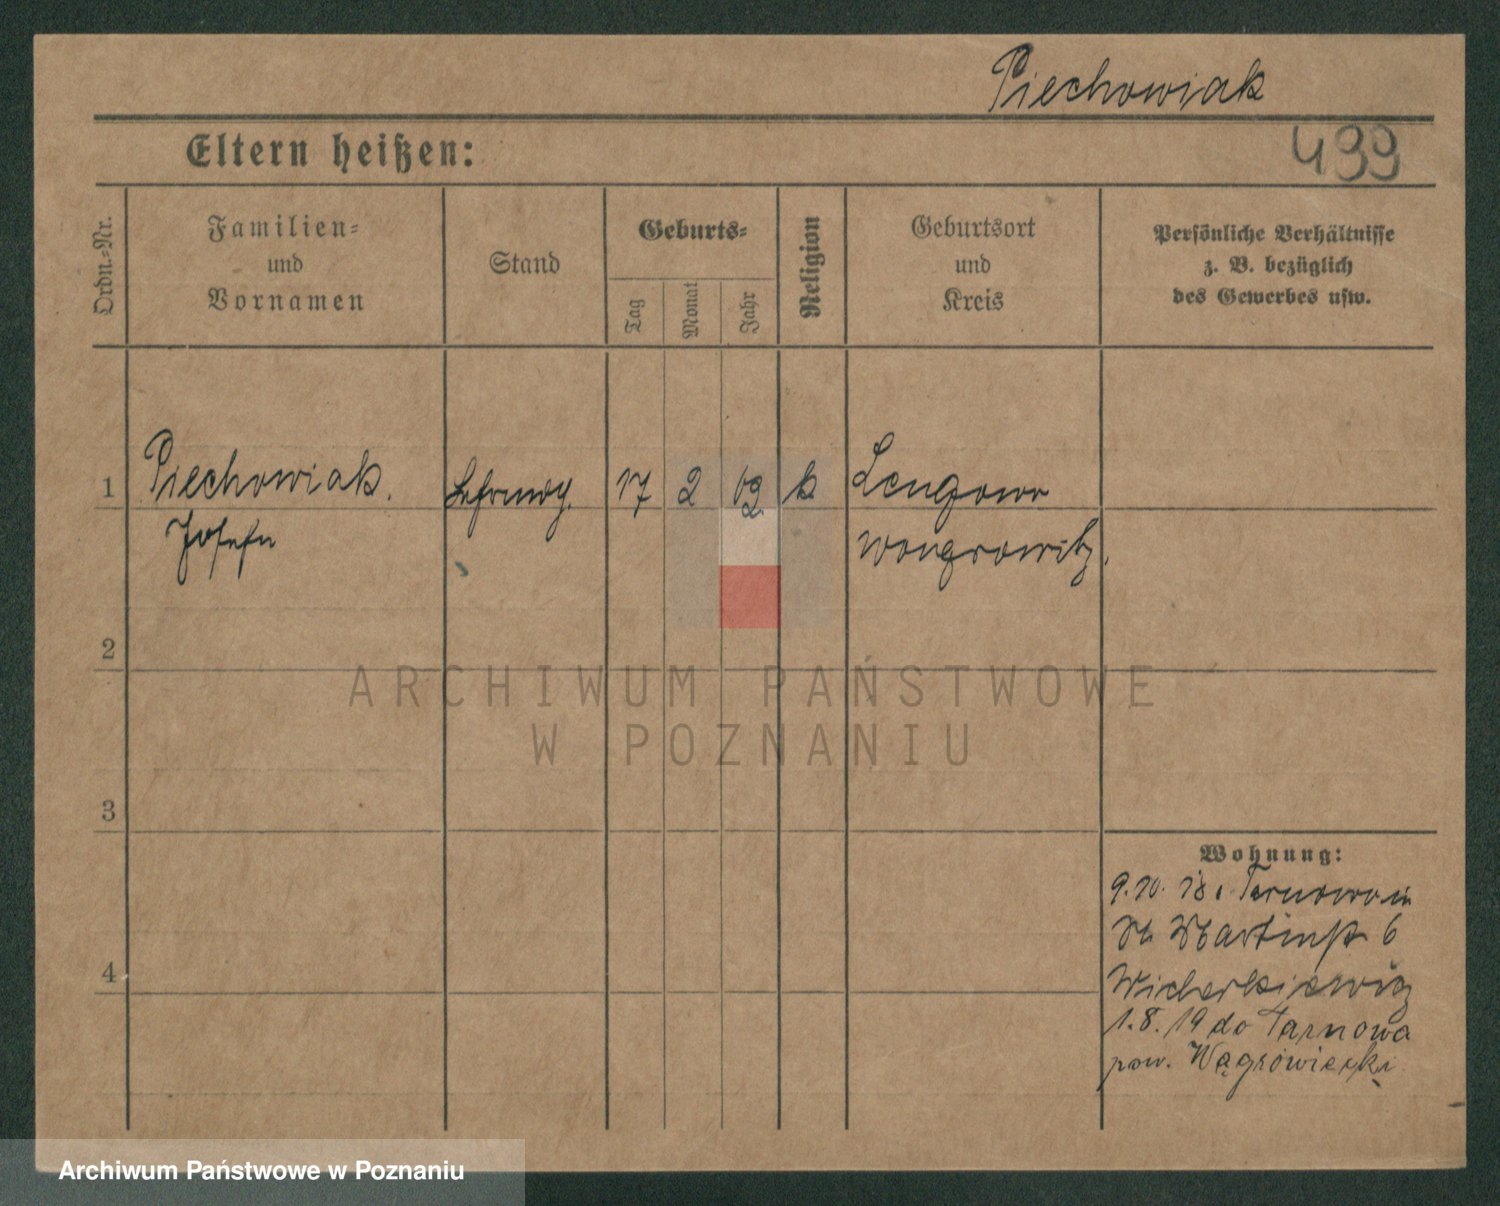 Piechowiak
Eltern heißen:
499
Ordn.-Nr.
Familien=
und
Vornamen
Stand
Geburts=
Tag
Monat
Jahr
Religion
Geburtsort
und
Kreis
Persönliche Verhältnisse
z. B. bezüglich
des Gewerbes usw.
1
Piechowiak.
17
2
k
Lengowo
Josefa
Wongrowitz.
2
ARCHIWUM PAŃSTWOWE
W POZNANIU
3
Wohnung:
9.10.18. Tarnowo
St Martinstr 6
Wicherkiewicz
1.8.19 do Tarnowa
pow. Wągrowiecki
4
Archiwum Państwowe w Poznaniu